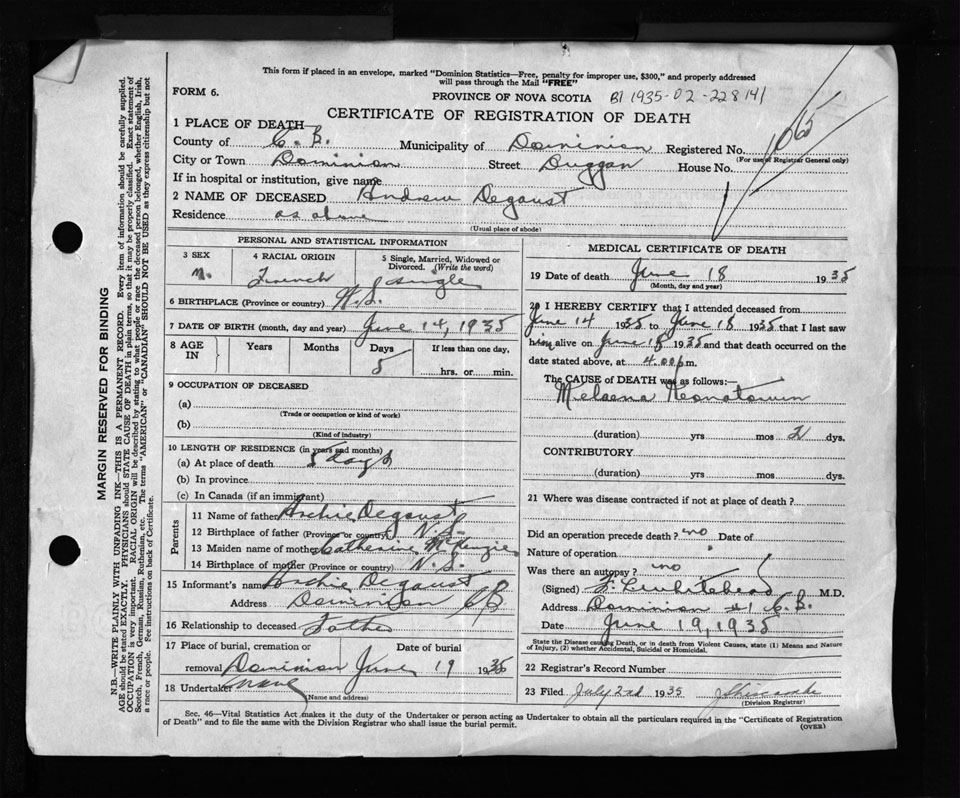 This form if placed in an envelope, marked "Dominion Statistics—Free, penalty for improper use, $300," and properly addressed
will pass through the Mail "FREE"
FORM 6.
PROVINCE OF NOVA SCOTIA B1 1935-02-228141
CERTIFICATE OF REGISTRATION OF DEATH
1065
1 PLACE OF DEATH—
County of C. B. Municipality of Dominion Registered No.
(For use of Registrar General only)
City or Town Dominion Street Duggan House No.
If in hospital or institution, give name
2 NAME OF DECEASED Andrew Degaust
Residence as above
(Usual place of abode)
PERSONAL AND STATISTICAL INFORMATION
3 SEX 4 RACIAL ORIGIN 5 Single, Married, Widowed or
Divorced. (Write the word)
M. French single
6 BIRTHPLACE (Province or country) N.S.
7 DATE OF BIRTH (month, day and year) June 14, 1935
8 AGE IN Years Months Days If less than one day,
5 hrs. or min.
9 OCCUPATION OF DECEASED
(a)
(Trade or occupation or kind of work)
(b)
(Kind of industry)
10 LENGTH OF RESIDENCE (in years and months)
(a) At place of death 5 days
(b) In province
(c) In Canada (if an immigrant)
Parents
11 Name of father Archie Degaust
12 Birthplace of father (Province or country) N.S.
13 Maiden name of mother Catherine McKenzie
14 Birthplace of mother (Province or country) N.S.
15 Informant's name Archie Degaust
Address Dominion CB
16 Relationship to deceased Father
17 Place of burial, cremation or Date of burial
removal Dominion June 19 1935
18 Undertaker none
(Name and address)
MEDICAL CERTIFICATE OF DEATH
19 Date of death June 18 1935
(Month, day and year)
20 I HEREBY CERTIFY that I attended deceased from
June 14 1935 to June 18 1935 that I last saw
him alive on June 18 1935 and that death occurred on the
date stated above, at 4.00 p.m.
The CAUSE of DEATH was as follows:—
Melaena Neonatorum
(duration) yrs mos 2 dys.
CONTRIBUTORY
(duration) yrs mos dys.
21 Where was disease contracted if not at place of death?
Did an operation precede death? no Date of
Nature of operation
Was there an autopsy? no
(Signed) M.D.
Address Dominion #1 C.B.
Date June 19, 1935
State the Disease causing Death, or in death from Violent Causes, state (1) Means and Nature
of Injury, (2) whether Accidental, Suicidal or Homicidal.
22 Registrar's Record Number
23 Filed July 2nd 1935
(Division Registrar)
Sec. 46—Vital Statistics Act makes it the duty of the Undertaker or person acting as Undertaker to obtain all the particulars required in the "Certificate of Registration
of Death" and to file the same with the Division Registrar who shall issue the burial permit.
(OVER)
MARGIN RESERVED FOR BINDING
N.B.—WRITE PLAINLY WITH UNFADING INK—THIS IS A PERMANENT RECORD. Every item of information should be carefully supplied.
AGE should be stated EXACTLY. PHYSICIANS should STATE CAUSE OF DEATH in plain terms, so that it may be properly classified. Exact statement of
OCCUPATION is very important. RACIAL ORIGIN will be described by stating to what people or race the deceased person belonged, whether English, Irish,
Scotch, French, German, Russian, Ruthenian, etc. The terms "AMERICAN" or "CANADIAN" SHOULD NOT BE USED as they express citizenship but not
a race or people. See instructions on back of Certificate.